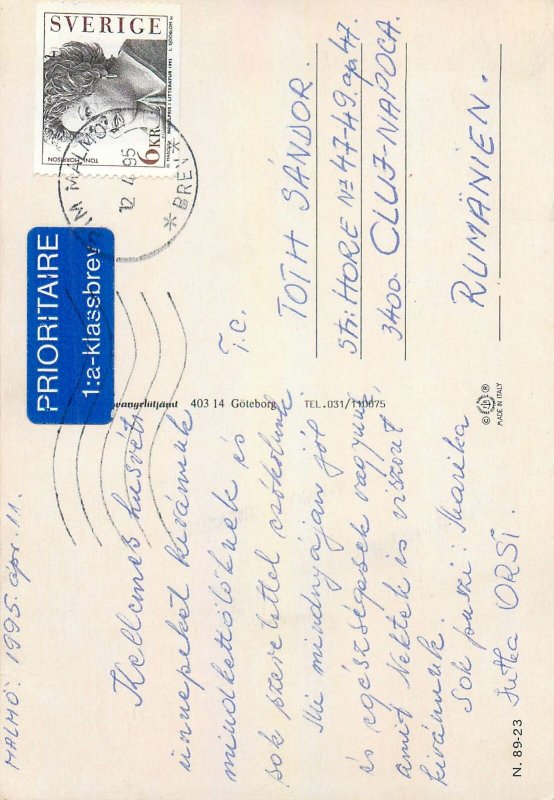 MALMÖ. 1995. ápr. 11.
Kellemes húsvéti
ünnepeket kívánunk
mindkettőtöknek és
sok szeretettel csókolunk
Mi mindnyájan jól
és egészségesek vagyunk,
amit Nektek is viszont
kívánunk.
Sok puszi: Marika
Jutka ORSI.
N. 89-23
PRIORITAIRE
1:a-klassbrev
vangelitjänst 403 14 Göteborg TEL. 031/110075
SVERIGE
6KR
TONI MORRISON
NOBELPRIS I LITTERATUR 1993
L. SJÖÖBLOM SC
MALMÖ
12 4 95
BREV
T.C.
TOTH SÁNDOR.
Str: HORE Nº 47-49. ap 47.
3400. CLUJ-NAPOCA.
RUMÄNIEN.
© ®
MADE IN ITALY